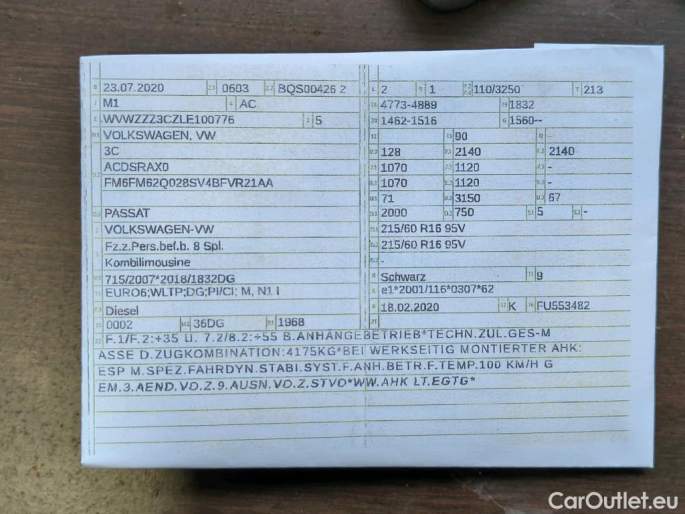 23.07.2020 0603 BQS00426 2
M1 AC
WVWZZZ3CZLE100776 5
VOLKSWAGEN, VW
3C
ACDSRAX0
FM6FM62Q028SV4BFVR21AA
PASSAT
VOLKSWAGEN-VW
Fz.z.Pers.bef.b. 8 Spl.
Kombilimousine
715/2007*2018/1832DG
EURO6;WLTP;DG;PI/CI; M, N1 I
Diesel
0002 36DG 1968
2 1 110/3250 213
4773-4889 1832
1462-1516 1560--
90 -
128 2140 2140
1070 1120 -
1070 1120 -
71 3150 67
2000 750 5 -
215/60 R16 95V
215/60 R16 95V
-
Schwarz 9
e1*2001/116*0307*62
18.02.2020 K FU553482
F.1/F.2:+35 U. 7.2/8.2:+55 B.ANHÄNGEBETRIEB*TECHN.ZUL.GES-M
ASSE D.ZUGKOMBINATION:4175KG*BEI WERKSEITIG MONTIERTER AHK:
ESP M.SPEZ.FAHRDYN.STABI.SYST.F.ANH.BETR.F.TEMP.100 KM/H G
EM.3.AEND.VO.Z.9.AUSN.VO.Z.STVO*WW.AHK LT.EGTG*
CarOutlet.eu